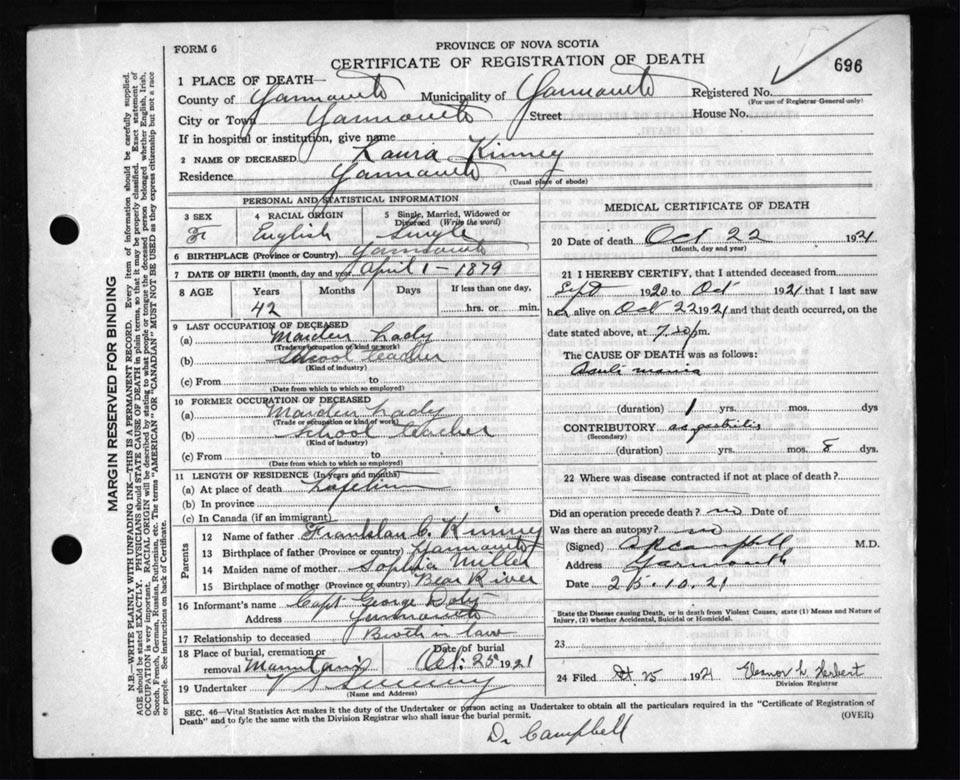 FORM 6
PROVINCE OF NOVA SCOTIA
CERTIFICATE OF REGISTRATION OF DEATH
696
1 PLACE OF DEATH—
County of Yarmouth Municipality of Yarmouth Registered No.
(For use of Registrar General only)
City or Town Yarmouth Street House No.
If in hospital or institution, give name
2 NAME OF DECEASED Laura Kinney
Residence Yarmouth
(Usual place of abode)
PERSONAL AND STATISTICAL INFORMATION
3 SEX F
4 RACIAL ORIGIN English
5 Single, Married, Widowed or Divorced (Write the word) Single
6 BIRTHPLACE (Province or Country) Yarmouth
7 DATE OF BIRTH (month, day and year) April 1 - 1879
8 AGE Years Months Days If less than one day,
42 hrs. or min.
9 LAST OCCUPATION OF DECEASED
(a) Maiden Lady
(Trade or occupation or kind of work)
(b) School teacher
(Kind of industry)
(c) From to
(Date from which to which so employed)
10 FORMER OCCUPATION OF DECEASED
(a) Maiden Lady
(Trade or occupation or kind of work)
(b) School teacher
(Kind of industry)
(c) From to
(Date from which to which so employed)
11 LENGTH OF RESIDENCE (In years and months)
(a) At place of death Lifetime
(b) In province
(c) In Canada (if an immigrant)
Parents
12 Name of father C. Kinney
13 Birthplace of father (Province or country) Yarmouth
14 Maiden name of mother Sophia Miller
15 Birthplace of mother (Province or country) Bear River
16 Informant's name Capt George
Address Yarmouth
17 Relationship to deceased Broth in law
18 Place of burial, cremation or removal Mountain
Date of burial Oct. 25 1921
19 Undertaker
(Name and Address)
MEDICAL CERTIFICATE OF DEATH
20 Date of death Oct 22 1921
(Month, day and year)
21 I HEREBY CERTIFY, that I attended deceased from
Sept 1920 to Oct 1921 that I last saw
her alive on Oct 22 1921 and that death occurred, on
date stated above, at 7.30 pm.
The CAUSE OF DEATH was as follows:
mania
(duration) 1 yrs. mos. dys
CONTRIBUTORY
(Secondary)
(duration) yrs. mos. 8 dys
22 Where was disease contracted if not at place of death?
Did an operation precede death? no Date of
Was there an autopsy? no
(Signed) Campbell M.D.
Address Yarmouth
Date 25.10.21
State the Disease causing Death, or in death from Violent Causes, state (1) Means and Nature of
Injury, (2) whether Accidental, Suicidal or Homicidal.
23
24 Filed Oct 25 1921 Herbert
Division Registrar
SEC. 46—Vital Statistics Act makes it the duty of the Undertaker or person acting as Undertaker to obtain all the particulars required in the "Certificate of Registration of
Death" and to fyle the same with the Division Registrar who shall issue the burial permit.
(OVER)
Dr Campbell
MARGIN RESERVED FOR BINDING
N.B.—WRITE PLAINLY WITH UNFADING INK—THIS IS A PERMANENT RECORD. Every item of information should be carefully supplied.
AGE should be stated EXACTLY. PHYSICIANS should STATE CAUSE OF DEATH in plain terms, so that it may be properly classified. Exact statement of
OCCUPATION is very important. RACIAL ORIGIN will be described by stating to what people or tongue the deceased person belonged whether English, Irish,
Scotch, French, German, Russian, Ruthenian, etc. The terms "AMERICAN" OR "CANADIAN" MUST NOT BE USED as they express citizenship but not a race
or people. See instructions on back of Certificate.